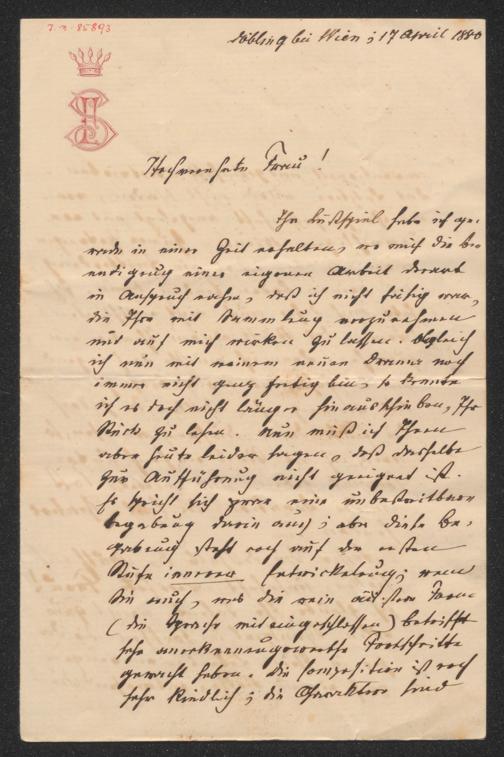 J. N. 85893
Döbling bei Wien; 17 April 1880
IS
Hochverehrte Frau!
Ihr Lustspiel habe ich ge-
rade in einer Zeit erhalten, wo mich die Be-
endigung einer eigenen Arbeit derart
in Anspruch nahm, daß ich nicht fähig war,
die Ihre mit Sammlung vorzunehmen
und auf mich wirken zu lassen. Obgleich
ich nun mit meinem neuen Drama noch
immer nicht ganz fertig bin, so konnte
ich es doch nicht länger hinausschieben, Ihr
Stück zu lesen. Nun muß ich Ihnen
aber heute leider sagen, daß dasselbe
zur Aufführung nicht geeignet ist.
Es spricht sich zwar eine unbestreitbare
Begabung darin aus; aber diese Be-
gabung steht noch auf der ersten
Stufe innerer Entwickelung; wenn
Sie auch, was die rein äußere Form
(die Sprache mit eingeschlossen) betrifft
sehr anerkennenswerthe Fortschritte
gemacht haben. Die Composition ist noch
sehr kindlich; die Charaktere sind